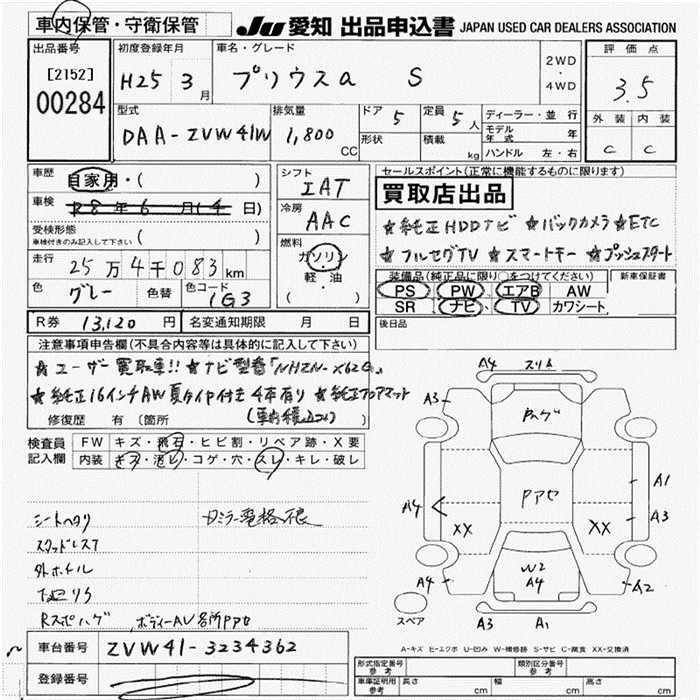 車内保管・守衛保管
JU 愛知 出品申込書 JAPAN USED CAR DEALERS ASSOCIATION
出品番号
[2152]
00284
初度登録年月
H25 3月
車名・グレード
プリウスα S
2WD・4WD
評価点
3.5
外装 内装
C C
型式
DAA-ZVW41W
排気量
1,800 CC
ドア 5
形状
定員 5人
積載 kg
ディーラー・並行
モデル年式 年
ハンドル 左・右
車歴 自家用・( )
車検 R8年6月14日)
受検形態
車検付きのみ記入して下さい ( )
走行 25万4千083km
色 グレー 色替 色コード 1G3
シフト
IAT
冷房
AAC
燃料
ガソリン
軽・油
( )
セールスポイント(正常に機能するものに限ります)
買取店出品
★純正HDDナビ ★バックカメラ ★ETC
★フルセグTV ★スマートキー ★プッシュスタート
装備品(純正品に限り○をつけてください)
PS PW エアB AW
SR ナビ TV カワシート
新車保証書
後日品
R券 13,120円 名変通知期限 月 日
注意事項申告欄(不具合内容等は具体的に記入して下さい)
★ユーザー買取車!! ★ナビ型番「NHZN-X62G」
★純正16インチAW夏タイヤ付き4本有り ★純正フロアマット
(車内積込み)
修復歴 有 (箇所 )
検査員記入欄
FW キズ・飛石・ヒビ割・リペア跡・X要
内装 キズ・汚レ・コゲ・穴・スレ・キレ・破レ
シートヘタリ
スタッドレス7
外ホイル
下廻リサ
Rスポハゲ ボディーAU各所Pアセ
車台番号 ZVW41-3234362
登録番号
A4 スリ
A3
Pハゲ
Pアセ
A4
XX XX
A1
A3
W2
A4
A4 A2
A3 A1
スペア
A-キズ E-エクボ U-凹み W-補修跡 S-サビ C-腐食 XX-交換済
形式指定番号 参考 類別区分番号 参考
車庫証明用 参考 長さ cm 幅 cm 高さ cm